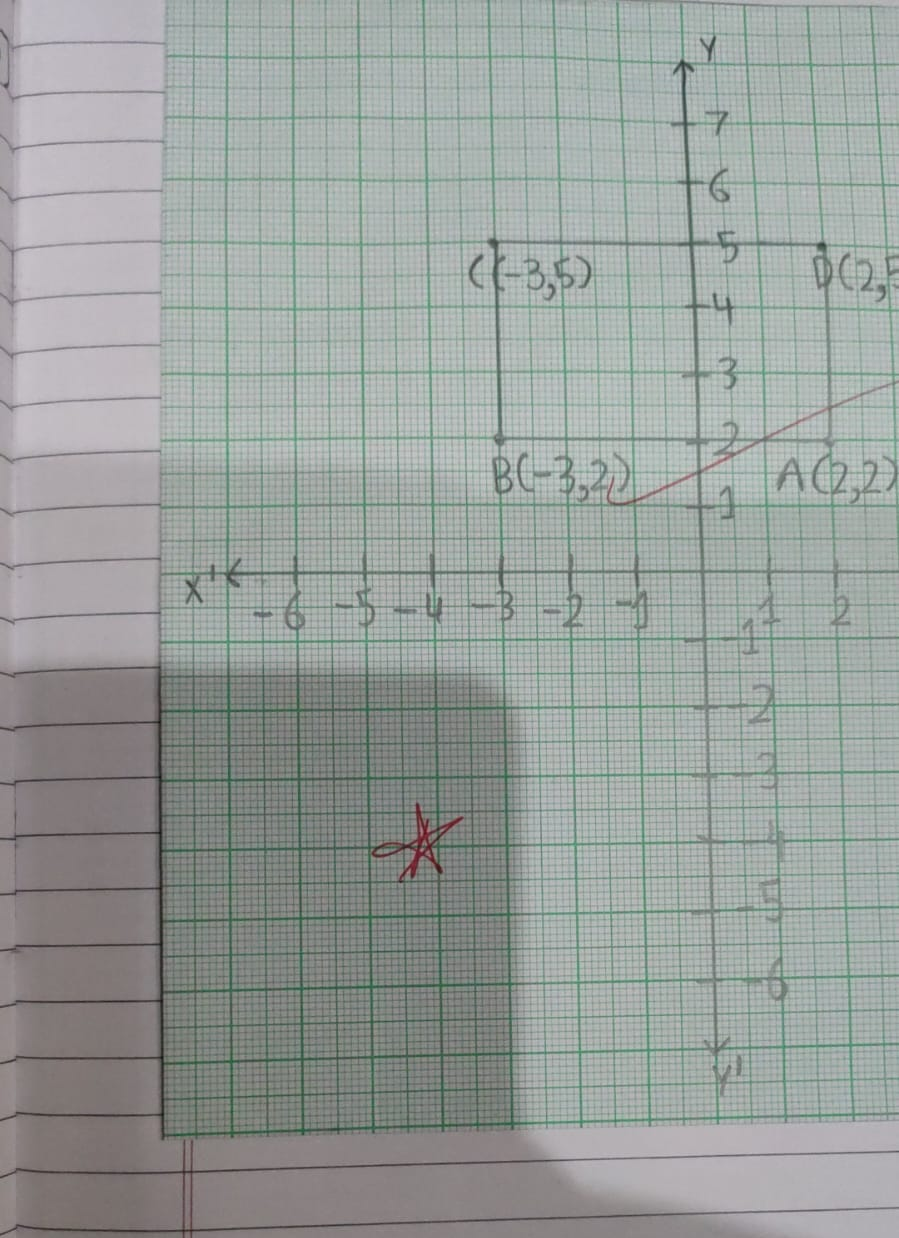 Y
7
6
5
C(-3,5) D(2,5
4
3
2
B(-3,2) A(2,2)
1
X'
-6 -5 -4 -3 -2 -1 1 2
-1
-2
-3
-4
-5
-6
Y'